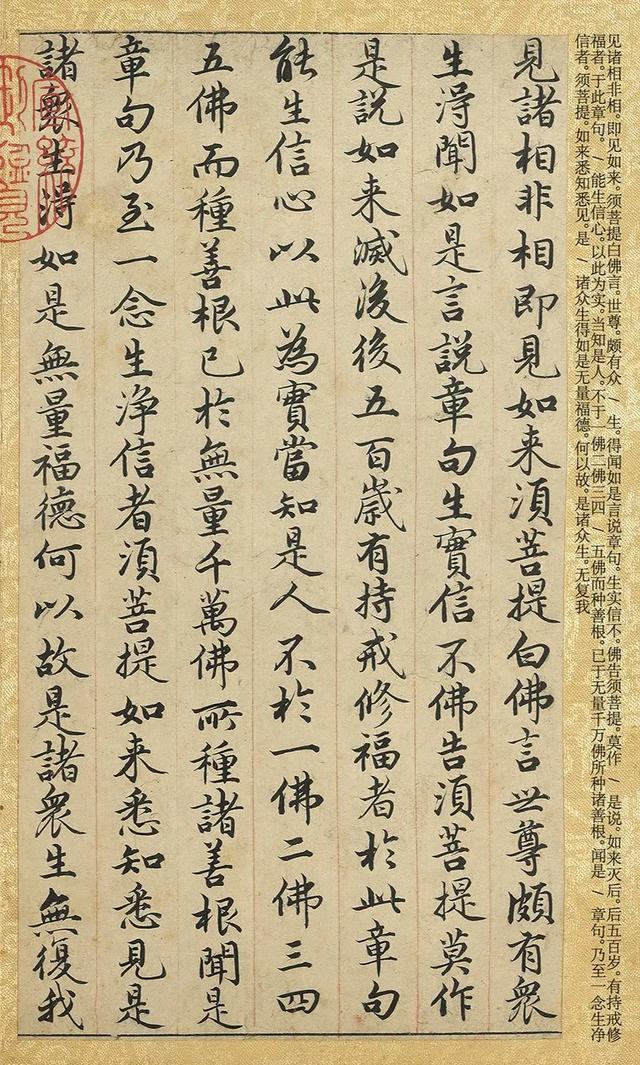 见诸相非相。即见如来。须菩提白佛言。世尊。颇有众 / 生。得闻如是言说章句。生实信不。佛告须菩提。莫作 / 是说。如来灭后。后五百岁。有持戒修
福者。于此章句。 / 能生信心。以此为实。当知是人。不于一佛二佛三四 / 五佛而种善根。已于无量千万佛所种诸善根。闻是 / 章句。乃至一念生净
信者。须菩提。如来悉知悉见。是 / 诸众生得如是无量福德。何以故。是诸众生。无复我
見諸相非相即見如来湏菩提白佛言世尊頗有衆
生淂聞如是言說章句生實信不佛告湏菩提莫作
是說如来滅後後五百歲有持戒修福者於此章句
能生信心以此為實當知是人不於一佛二佛三四
五佛而種善根已於無量千萬佛所種諸善根聞是
章句乃至一念生淨信者湏菩提如来悉知悉見是
諸衆生淂如是無量福德何以故是諸衆生無復我